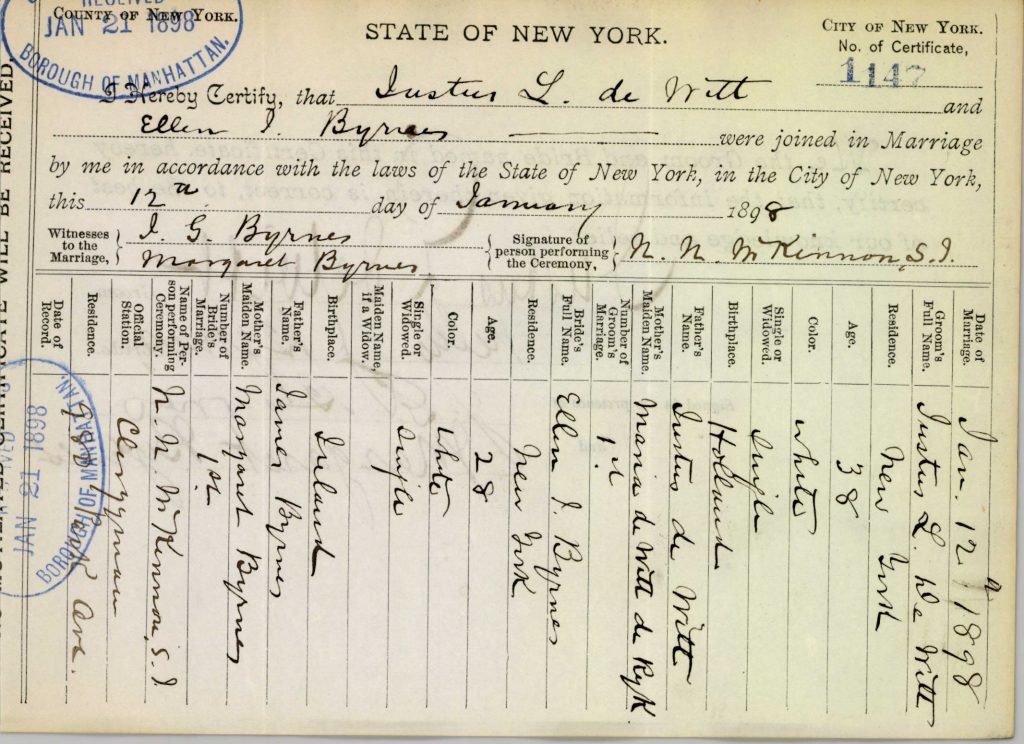 RECEIVED
COUNTY OF NEW YORK.
JAN 21 1898
BOROUGH OF MANHATTAN.
STATE OF NEW YORK.
CITY OF NEW YORK.
No. of Certificate,
1147
I Hereby Certify, that Justus L. de Witt and
Ellen J. Byrnes were joined in Marriage
by me in accordance with the laws of the State of New York, in the City of New York,
this 12th day of January 1898
Witnesses to the Marriage, J. G. Byrnes
Margaret Byrnes.
Signature of person performing the Ceremony, N. N. McKinnon, S.J.
Date of Marriage. Jan. 12th 1898
Groom's Full Name. Justus L. De Witt
Residence. New York
Age. 38
Color. White
Single or Widowed. Single
Birthplace. Holland
Father's Name. Justus de Witt
Mother's Maiden Name. Maria de Witt de Ryk
Number of Groom's Marriage. 1st
Bride's Full Name. Ellen J. Byrnes
Residence. New York
Age. 28
Color. White
Single or Widowed. Single
Maiden Name, if a Widow.
Birthplace. Ireland
Father's Name. James Byrnes
Mother's Maiden Name. Margaret Byrnes
Number of Bride's Marriage. 1st.
Name of Person performing Ceremony. N. N. McKinnon, S.J.
Official Station. Clergyman
Residence. Park Ave.
Date of Record.
JAN 21 1898
BOROUGH OF MANHATTAN.
CERTIFICATE WILL BE RECEIVED.